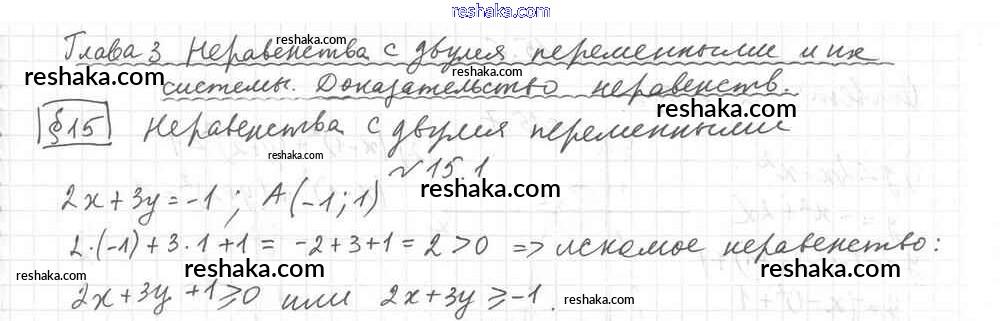 reshaka.com
Глава 3 Неравенства с двумя переменными и их
reshaka.com reshaka.com
reshaka.com системы. Доказательство неравенств.
reshaka.com
§15 Неравенства с двумя переменными
reshaka.com
№ 15.1
reshaka.com reshaka.com
2x+3y=-1; A(-1;1)
reshaka.com
2·(-1)+3·1+1 = -2+3+1=2>0 => искомое неравенство:
reshaka.com reshaka.com reshaka.com
2x+3y+1≥0 или 2x+3y≥-1. reshaka.com